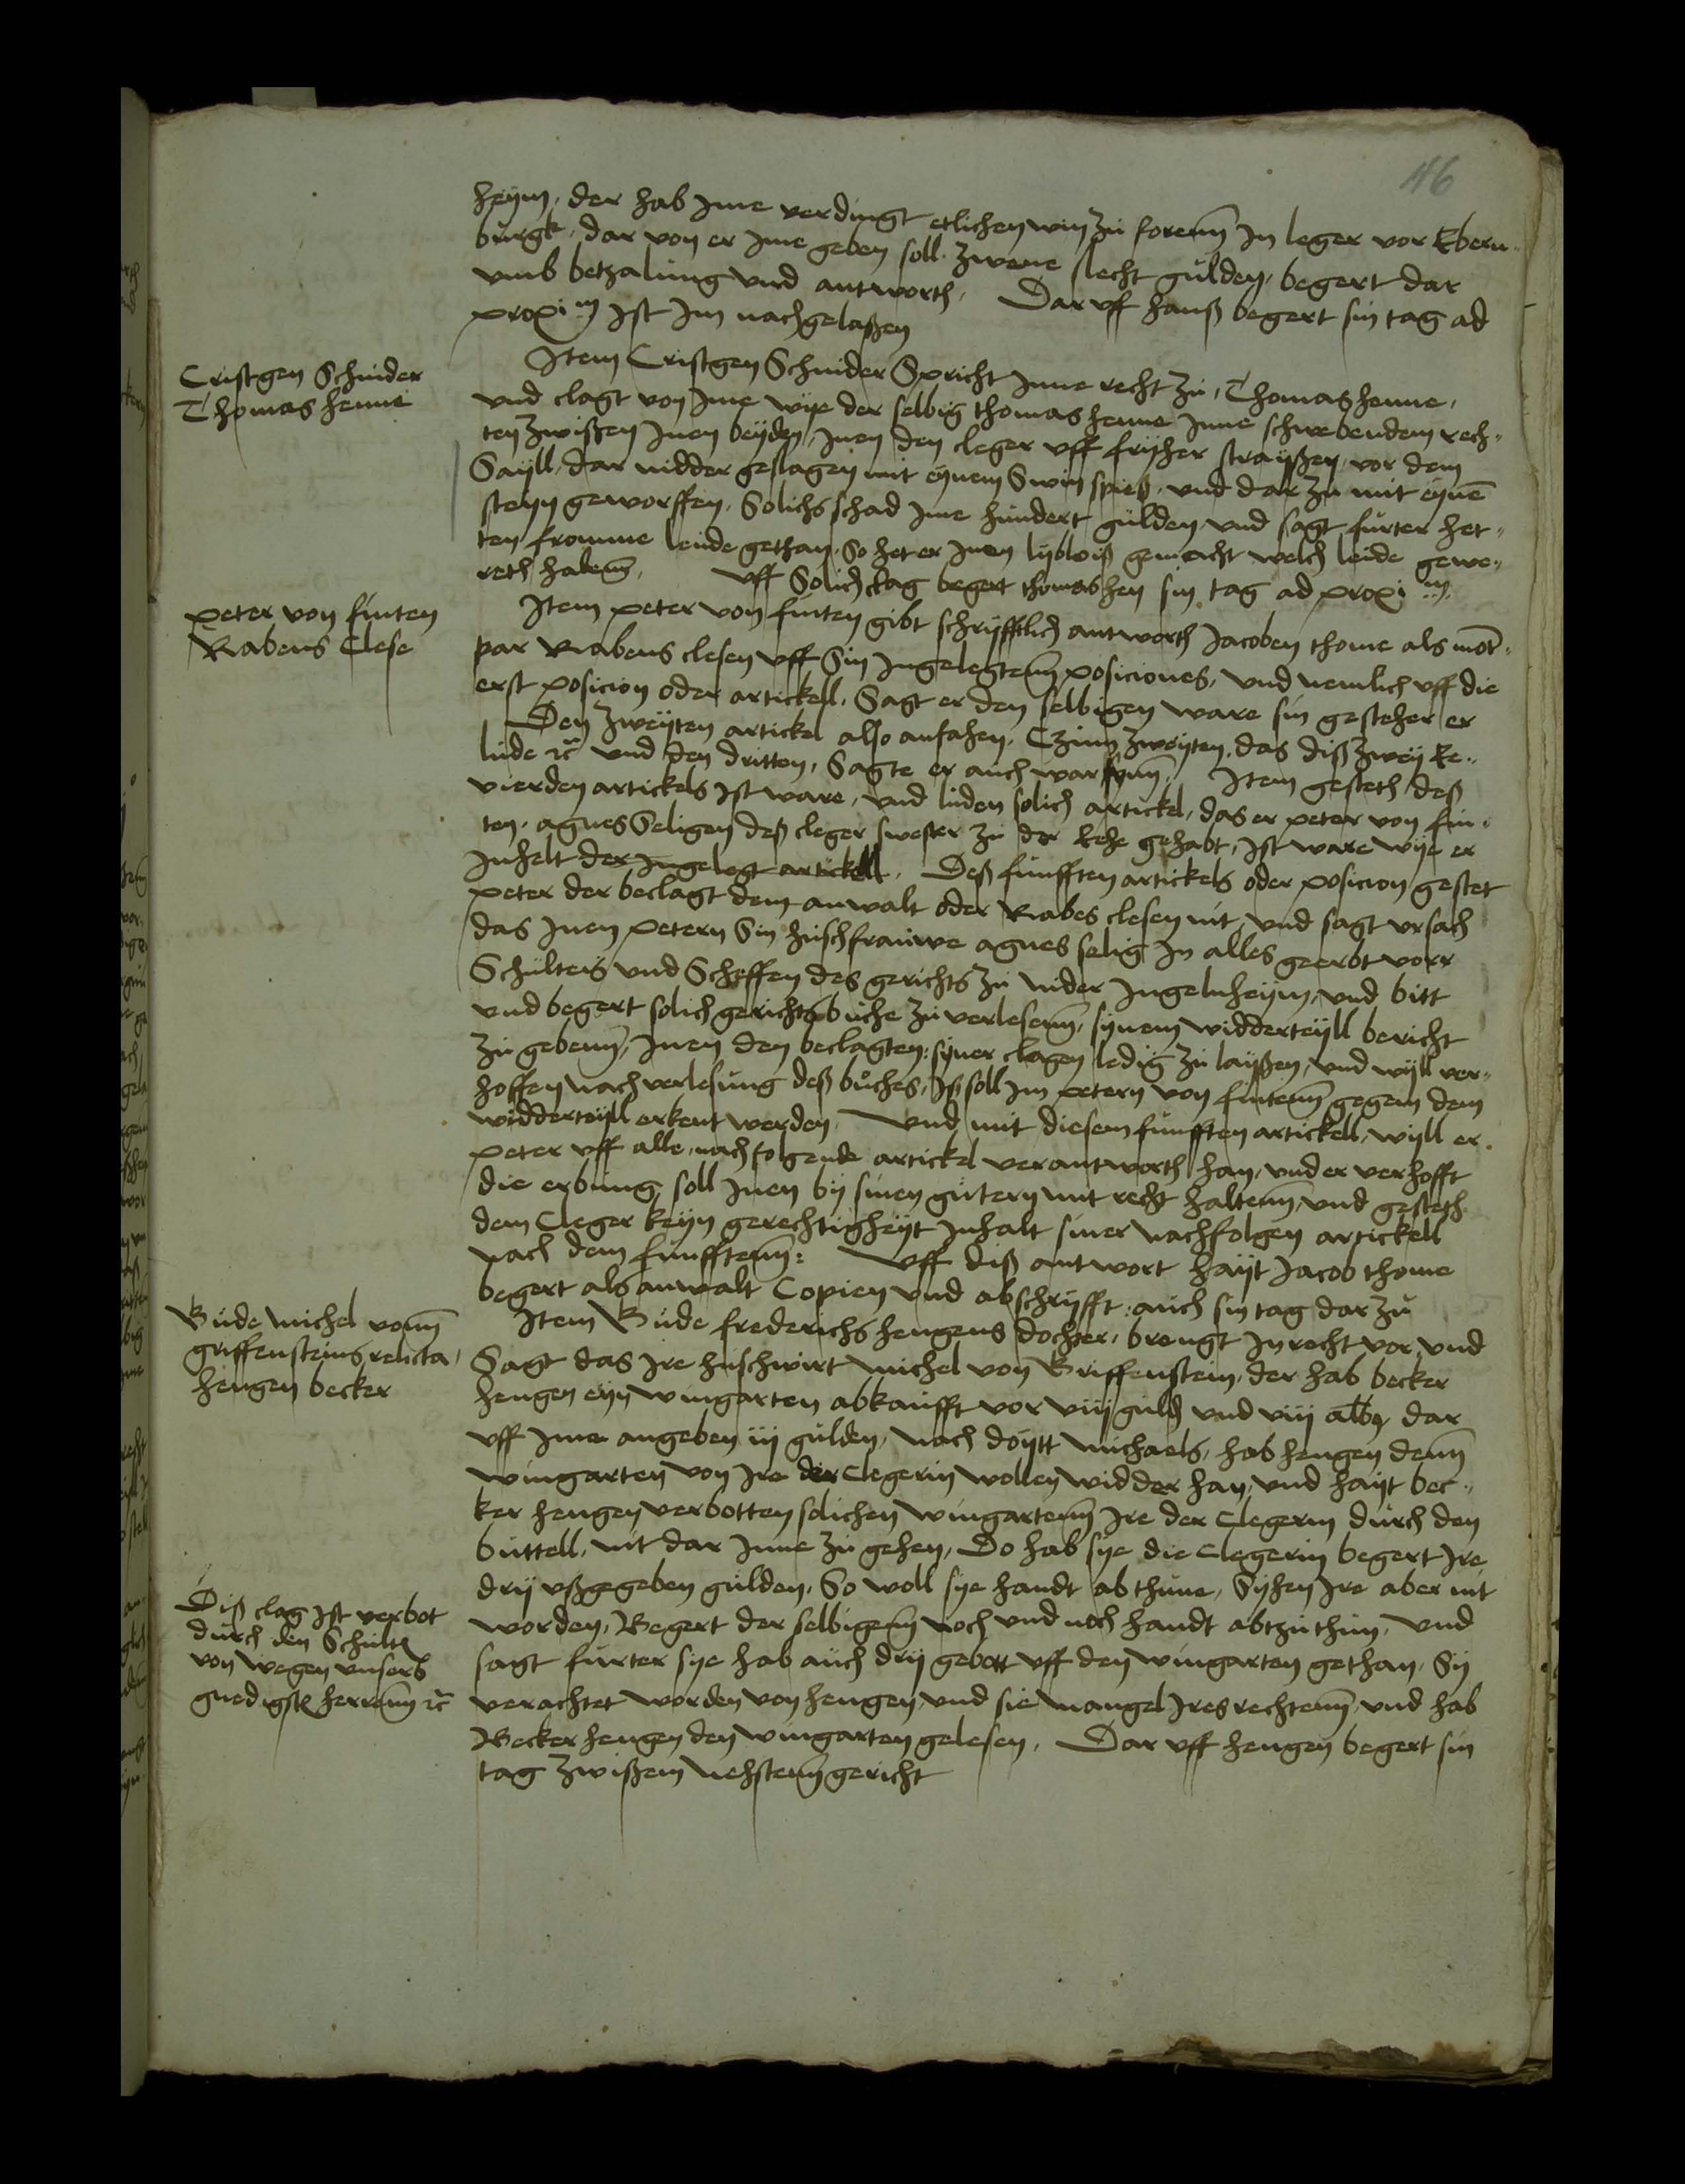 116
heym, der hab jme verdingt etlichen win zu forenn jn leger vor Ebern„
burgk, dar von er jme geben soll zwene slecht gulden, begert dar
vmb betzalung vnd antworth, Dar vff hanß begert sin tag ad
proxim ist jm nachgelaßen
Cristgen Schnider
Thomas henne
Item Cristgen Schnider Spricht jnne recht zu, Thomas henne,
vnd clagt von jme wye der selbig thomas henne jnne schwebendem rech„
ten zwißen jnen beyden, jnen den cleger vff fryher straißen vor dem
Sayll, dar nidder geslagen mit eynem Swin spieß, vnd dar zu mit eynē
steyn geworffen, Solichs schad jme hundert gulden vnd sagt furter het„
ten fromme leude gethan, So het er jnen lyblois gemacht welch leude gewe„
reth habenn, vff Solich clag begert thomas hen sin tag ad proxim
peter von finten
Rabens Clese
Item peter von finten gibt schryfftlich antworth Jacoben thome als mom„
par Rabens clesen vff Sin jngelegtenn posiciones, vnd nemlich vff die
erst posicion oder artickell, Sagt er den selbigen ware sin gesteher er
Den zweyten artickel also anfahen, Czum zweyten, das diß zwey Ee„
lude ꝛc̃ vnd den dritten, Sagte er auch war synn, Item gesteth deß
vierden artickels ist ware, vnd luden solich artickel, das er peter von fin„
ten, agnes Seligen deß cleger swester zu der Eehe gehabt, ist ware wye er
jnhelt der jngelegt artickell, Deß funfften artickels oder posicion gestet
peter der beclagt dem anwalt oder Rabes clesen nit, vnd sagt vrsach
das jnen petern Sin huschfrauwe agnes selig jn alles geerbt vorr
Schulteis vnd Scheffen des gerichts zu nider jngelnheym, vnd bitt
vnd begert solich gerichtsbuche zu verlesenn, synem widderteyll bericht
zu gebenn, jnen den beclagten, syner clagen ledig zu layßen, vnd wyll ver„
hoffen nach verlesung deß buches, js soll jm petern von fintenn gegem dem
widderteyll erkent werden, vnd mit diesem funfften artickell, wyll er
peter vff alle nachfolgende artickel verantworth han, vnd er verhofft
die erbung soll jnen by sinen gutern mit recht haltenn, vnd gesteth
dem Cleger keyn gerechtigheyt jnhalt siner nachfolgen artickell
nach dem funfftenn: Vff diß antwort hayt Jacob thome
begert als anwalt Copien vnd abschryfft, auch sin tag dar zu
Gude michel vonn
griffensteins relicta,
hengen becker
Item Gude frederichs hengens dochter, brengt jn recht vor vnd
Sagt das jre huschwirt michel von Griffenstein, der hab becker
hengen eyn wingarten abkaufft vor viij guld vnd viij alb9 dar
vff jme angeben iij gulden, nach doytt michaels, hab hengen denn
wingarten von jre der Clegerin wollen widder han, vnd hayt bec„
ker hengen verbotten solichen wingartenn jre der Clegerin durch den
buttell, nit dar jnne zu gehen, Do hab sye die Clegerin begert jre
dry vßgegeben gulden, So woll sye handt ab thune, Syhen jre aber nit
worden, Begert der selbigenn noch vnd noch handt abtzuthun, vnd
sagt furter sye hab auch dry gebott vff den wingarten gethan, Sy
verachtet worden von hengen, vnd sie mangel jres rechtenn, vnd hab
Becker hengen den wingarten gelesen, Dar vff hengen begert sin
tag zwißem nehstenn gericht
Diß clag ist verbot
durch den Schulteß
von wegen vnsers
gnedigsten herrenn ꝛc̃